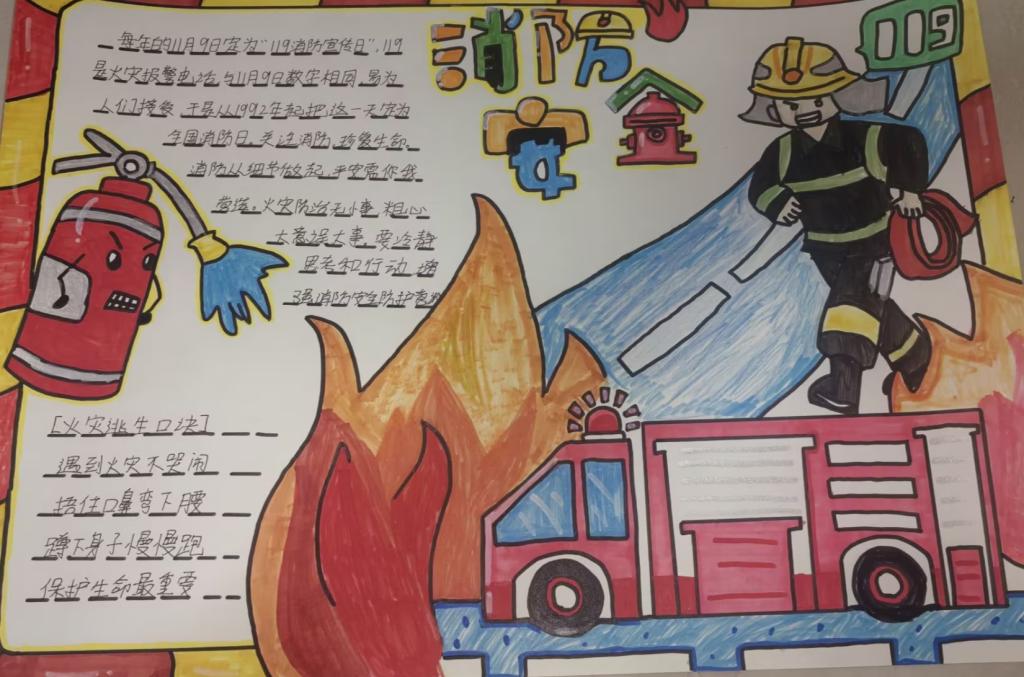 消防安全
119
每年的11月9日定为“119消防宣传日”，119
是火灾报警电话，与11月9日数字相同，易为
人们接受，于是从1992年起，把这一天定为
全国消防日。关注消防，珍爱生命。
消防从细节做起，平安需你我
营造。火灾防治无小事，粗心
大意误大事，要冷静
思考和行动，增
强消防安全防护意
[火灾逃生口诀]
遇到火灾不哭闹
捂住口鼻弯下腰
蹲下身子慢慢跑
保护生命最重要